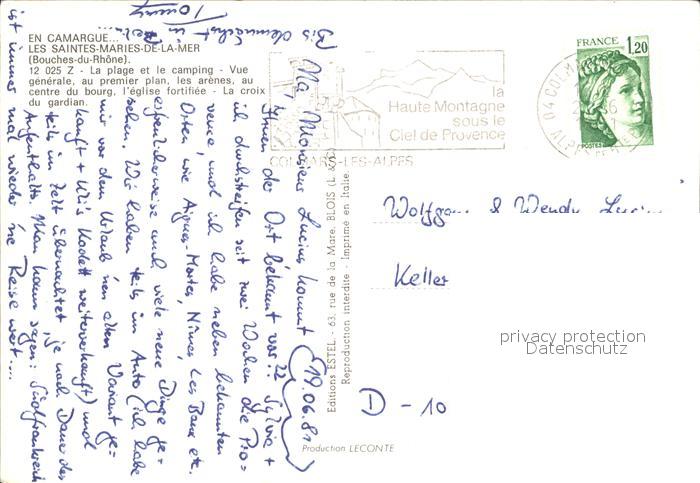 EN CAMARGUE...
LES SAINTES-MARIES-DE-LA-MER
(Bouches-du-Rhône).
12 025 Z - La plage et le camping - Vue
générale, au premier plan, les arènes, au
centre du bourg, l'église fortifiée - La croix
du gardian.
la
Haute Montagne
sous le
Ciel de Provence
COLMARS-LES-ALPES
FRANCE 1,20
POSTES
04 COLMARS
Editions ESTEL - 63, rue de la Mare. BLOIS (L & C)
Reproduction interdite - Imprimé en Italie
Production LECONTE
19.06.81
Na, Monsieur Lucius kommt
Ihnen der Ort bekannt vor?? Sylvia +
ich durchstreifen seit zwei Wochen die Pro=
vence, und ich habe neben bekannten
Orten wie Aigues-Mortes, Nîmes, Les Baux etc.
erfreulicherweise auch viele neue Dinge ge=
sehen. Wir haben teils im Auto (ich habe
mir vor dem Urlaub nen alten Variant ge=
kauft + Uli's Kadett weiterverkauft) und
teils im Zelt übernachtet, je nach Dauer des
Aufenthalts. Man kann sagen: Südfrankreich
ist immer mal wieder ne Reise wert....
Bis demnächst in
Tommy
Wolfgang & Wendy Lucius
Keller
D - 10
privacy protection
Datenschutz